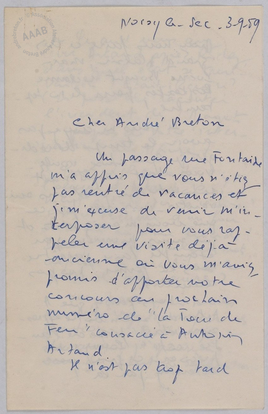 AAAB
Noisy le Sec 3-9-59
Cher André Breton
Un passage rue Fontaine
m'a appris que vous n'étiez
pas rentré de vacances et
je m'excuse de venir m'in-
terposer pour vous rap-
peler une visite déjà
ancienne où vous m'aviez
promis d'apporter votre
concours au prochain
numéro de "La Tour de
Feu" consacré à Antonin
Artaud.
Il n'est pas trop tard